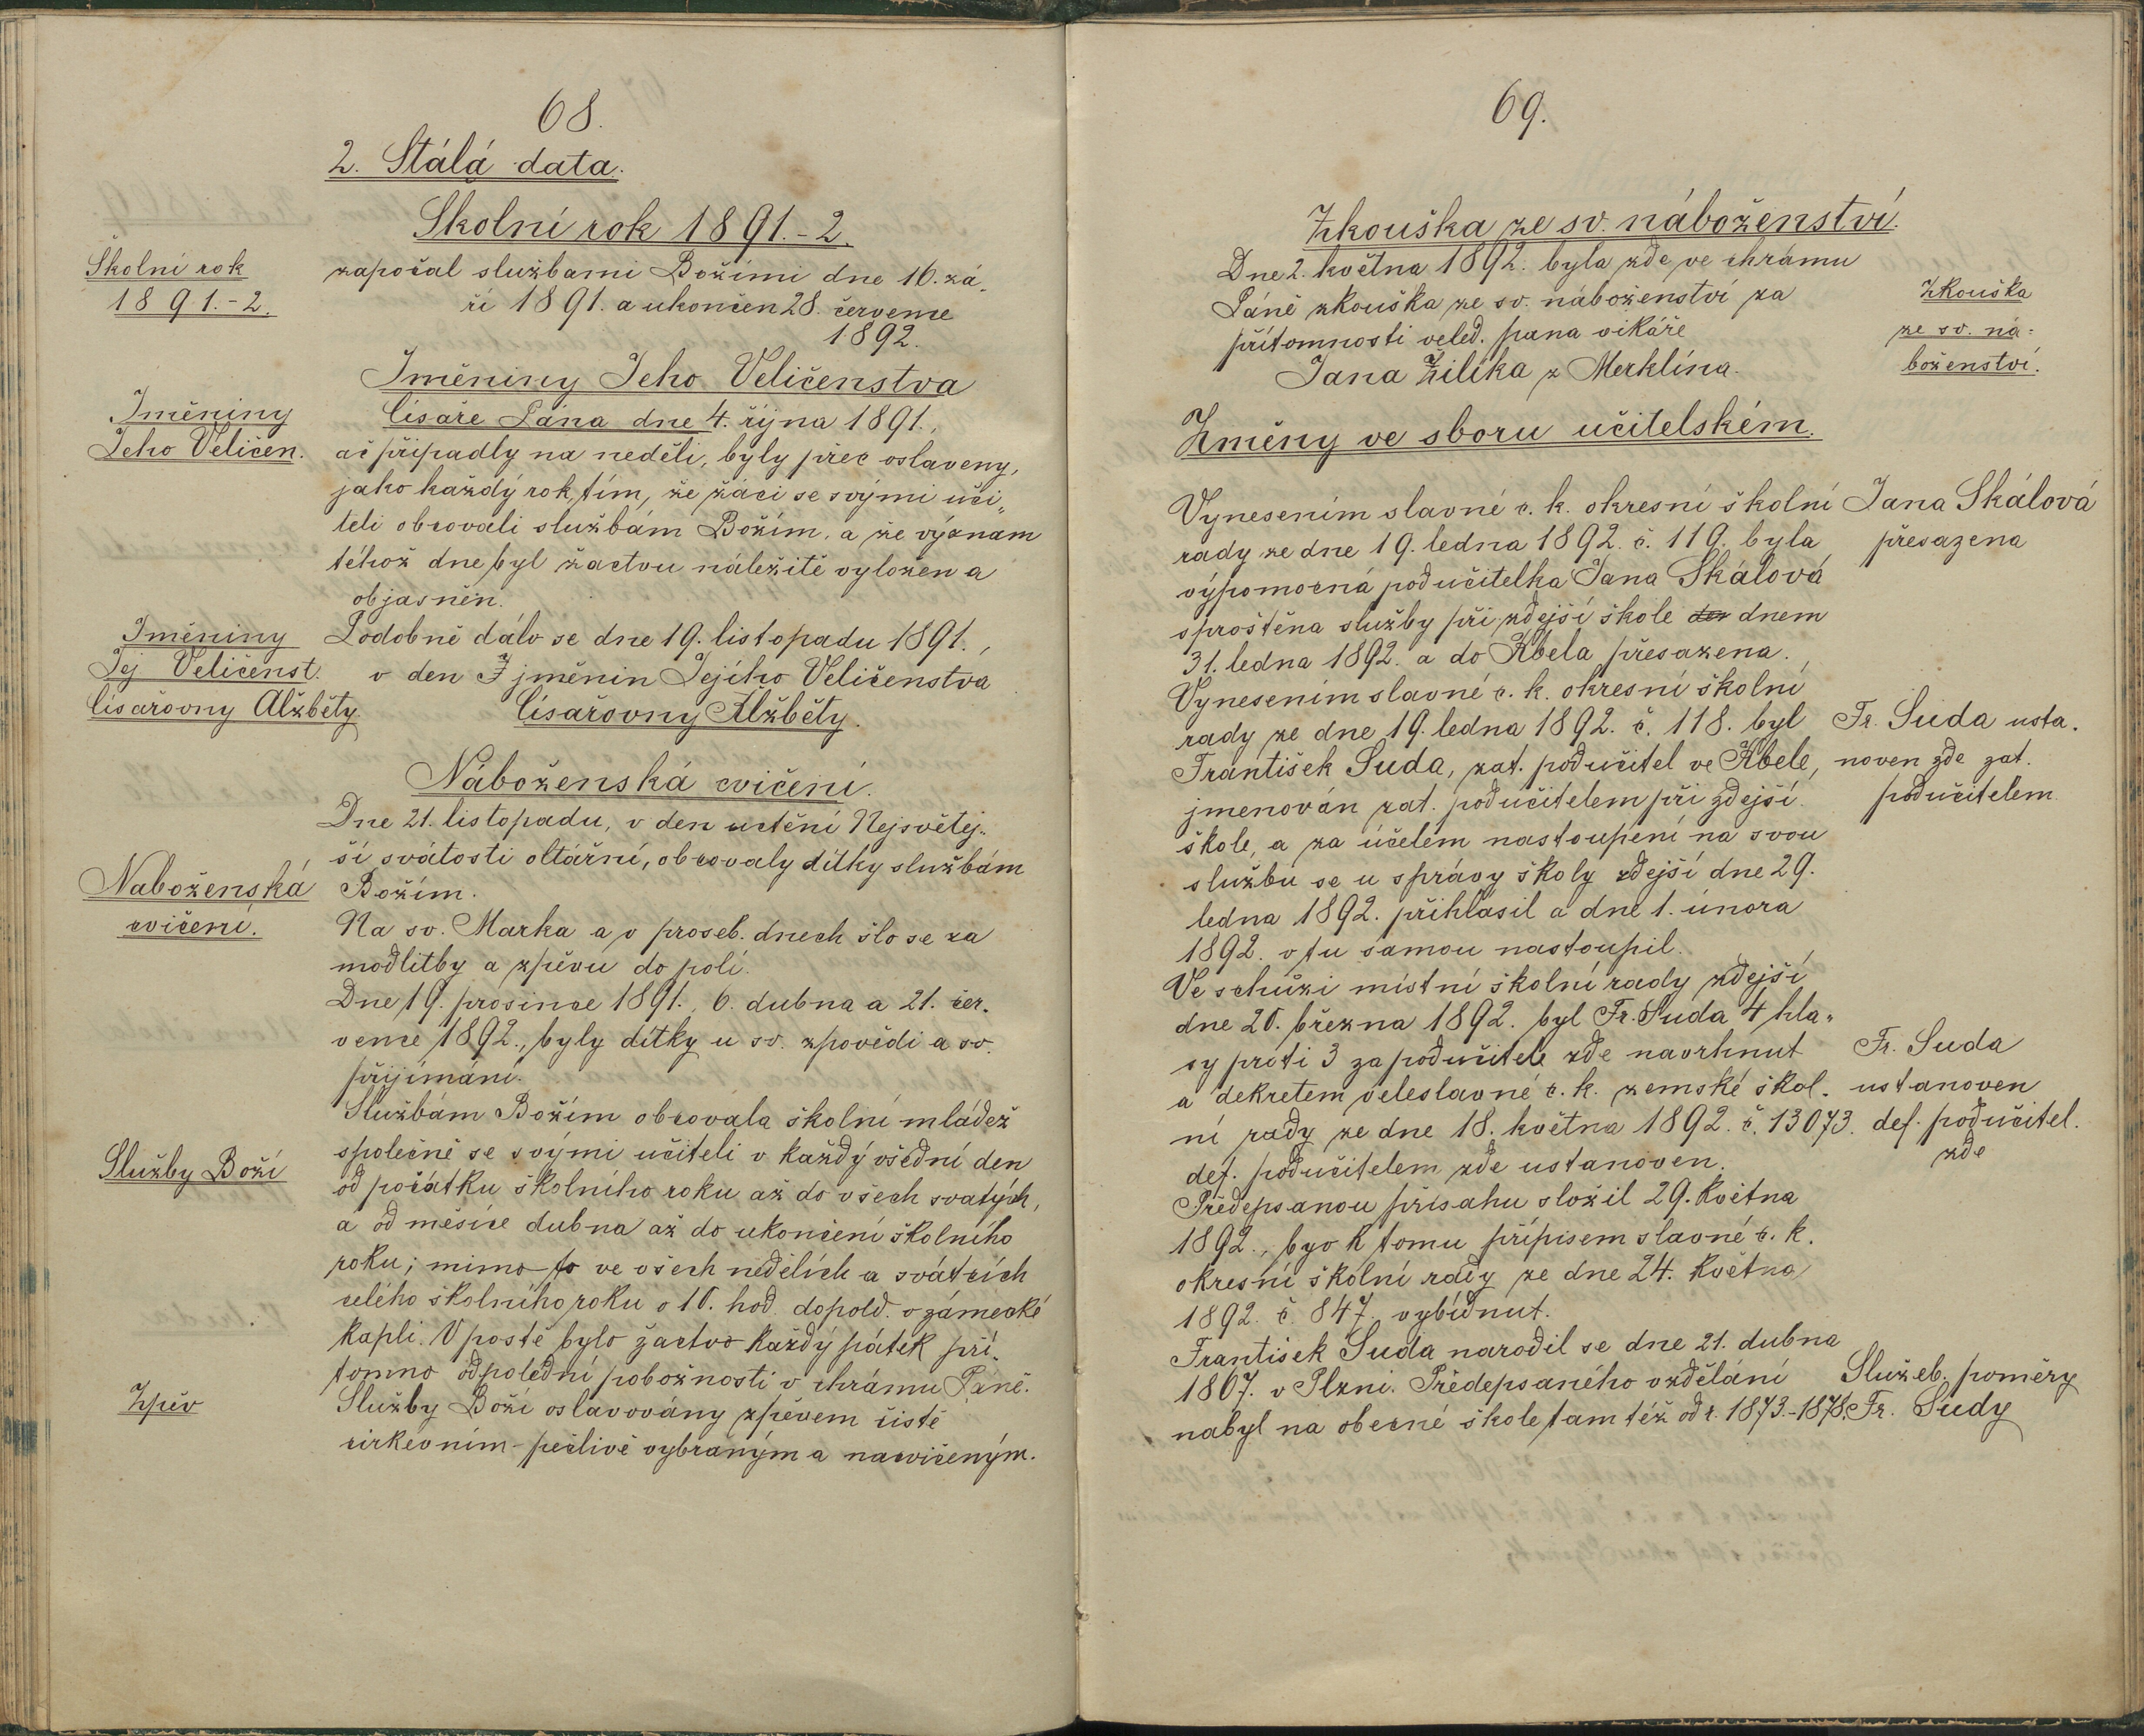 68.
2. Stálá data.
Školní rok 1891.-2.
Školní rok
1891.-2.
započal službami Božími dne 16. zá„
ří 1891. a ukončen 28. července
1892.
Jměniny Jeho Veličenstva
Jměniny
Jeho Veličen.
Císaře Pána dne 4. října 1891.,
ač připadly na neděli, byly přec oslaveny,
jako každý rok, tím, že žáci se svými uči„
teli obcovali službám Božím, a že význam
téhož dne byl žactvu náležitě vyložen a
objasněn.
Jměniny
Jej Veličenst.
Císařovny Alžběty.
Podobně dálo se dne 19. listopadu 1891.,
v den Jjměnin Jejího Veličenstva
Císařovny Alžběty.
Náboženská cvičení.
Dne 21. listopadu, v den uctění Nejsvětěj„
ší svátosti oltářní, obcovaly dítky službám
Božím.
Naboženská
cvičení.
Na sv. Marka a v proseb. dnech šlo se za
modlitby a zpěvu do polí.
Dne 19. prosince 1891., 6. dubna a 21. čer„
vence 1892., byly dítky u sv. zpovědi a sv.
přijímání.
Službám Božím obcovala školní mládež
společně se svými učiteli v každý všední den
Služby Boží
od počátku školního roku až do všech svatých,
a od měsíce dubna až do ukončení školního
roku; mimo to ve všech nedělích a svátcích
celého školního roku o 10. hod. dopold. v zámecké
kapli. V postě bylo žactvo každý pátek pří„
tomno odpolední pobožnosti v chrámu Páně.
Zpěv
Služby Boží oslavovány zpěvem čistě
církevním pečlivě vybraným a nacvičeným.
69.
Zkouška ze sv. náboženství.
Dne 2. května 1892. byla zde ve chrámu
Páně zkouška ze sv. náboženství za
přítomnosti veled. pana vikáře
Jana Žilíka z Merklína.
Zkouška
ze sv. ná-
boženství.
Změny ve sboru učitelském.
Vynesením slavné c. k. okresní školní
rady ze dne 19. ledna 1892. č. 119. byla
výpomocná podučitelka Jana Skálová
sproštěna služby při zdejší škole den dnem
31. ledna 1892. a do Kbela přesazena.
Jana Skálová
přesazena
Vynesením slavné c. k. okresní školní
rady ze dne 19. ledna 1892. č. 118. byl
František Suda, zat. podučitel ve Kbele,
jmenován zat. podučitelem při zdejší
škole, a za účelem nastoupení na svou
službu se u správy školy zdejší dne 29.
ledna 1892. přihlásil a dne 1. února
1892. v tu samou nastoupil.
Fr. Suda usta„
noven zde zat.
podučitelem
Ve schůzi místní školní rady zdejší
dne 20. března 1892. byl Fr. Suda 4 hla„
sy proti 3 za podučitele zde navrhnut
a dekretem veleslavné c. k. zemské škol„
ní rady ze dne 18. května 1892. č. 13073.
def. podučitelem zde ustanoven.
Fr. Suda
ustanoven
def. podučitel.
zde
Předepsanou přísahu složil 29. května
1892., byv k tomu přípisem slavné c. k.
okresní školní rady ze dne 24. května
1892. č. 847. vybídnut.
František Suda narodil se dne 21. dubna
1867. v Plzni. Předepsaného vzdělání
nabyl na obecné škole tamtéž od r. 1873.-1878.
Služeb. poměry
Fr. Sudy